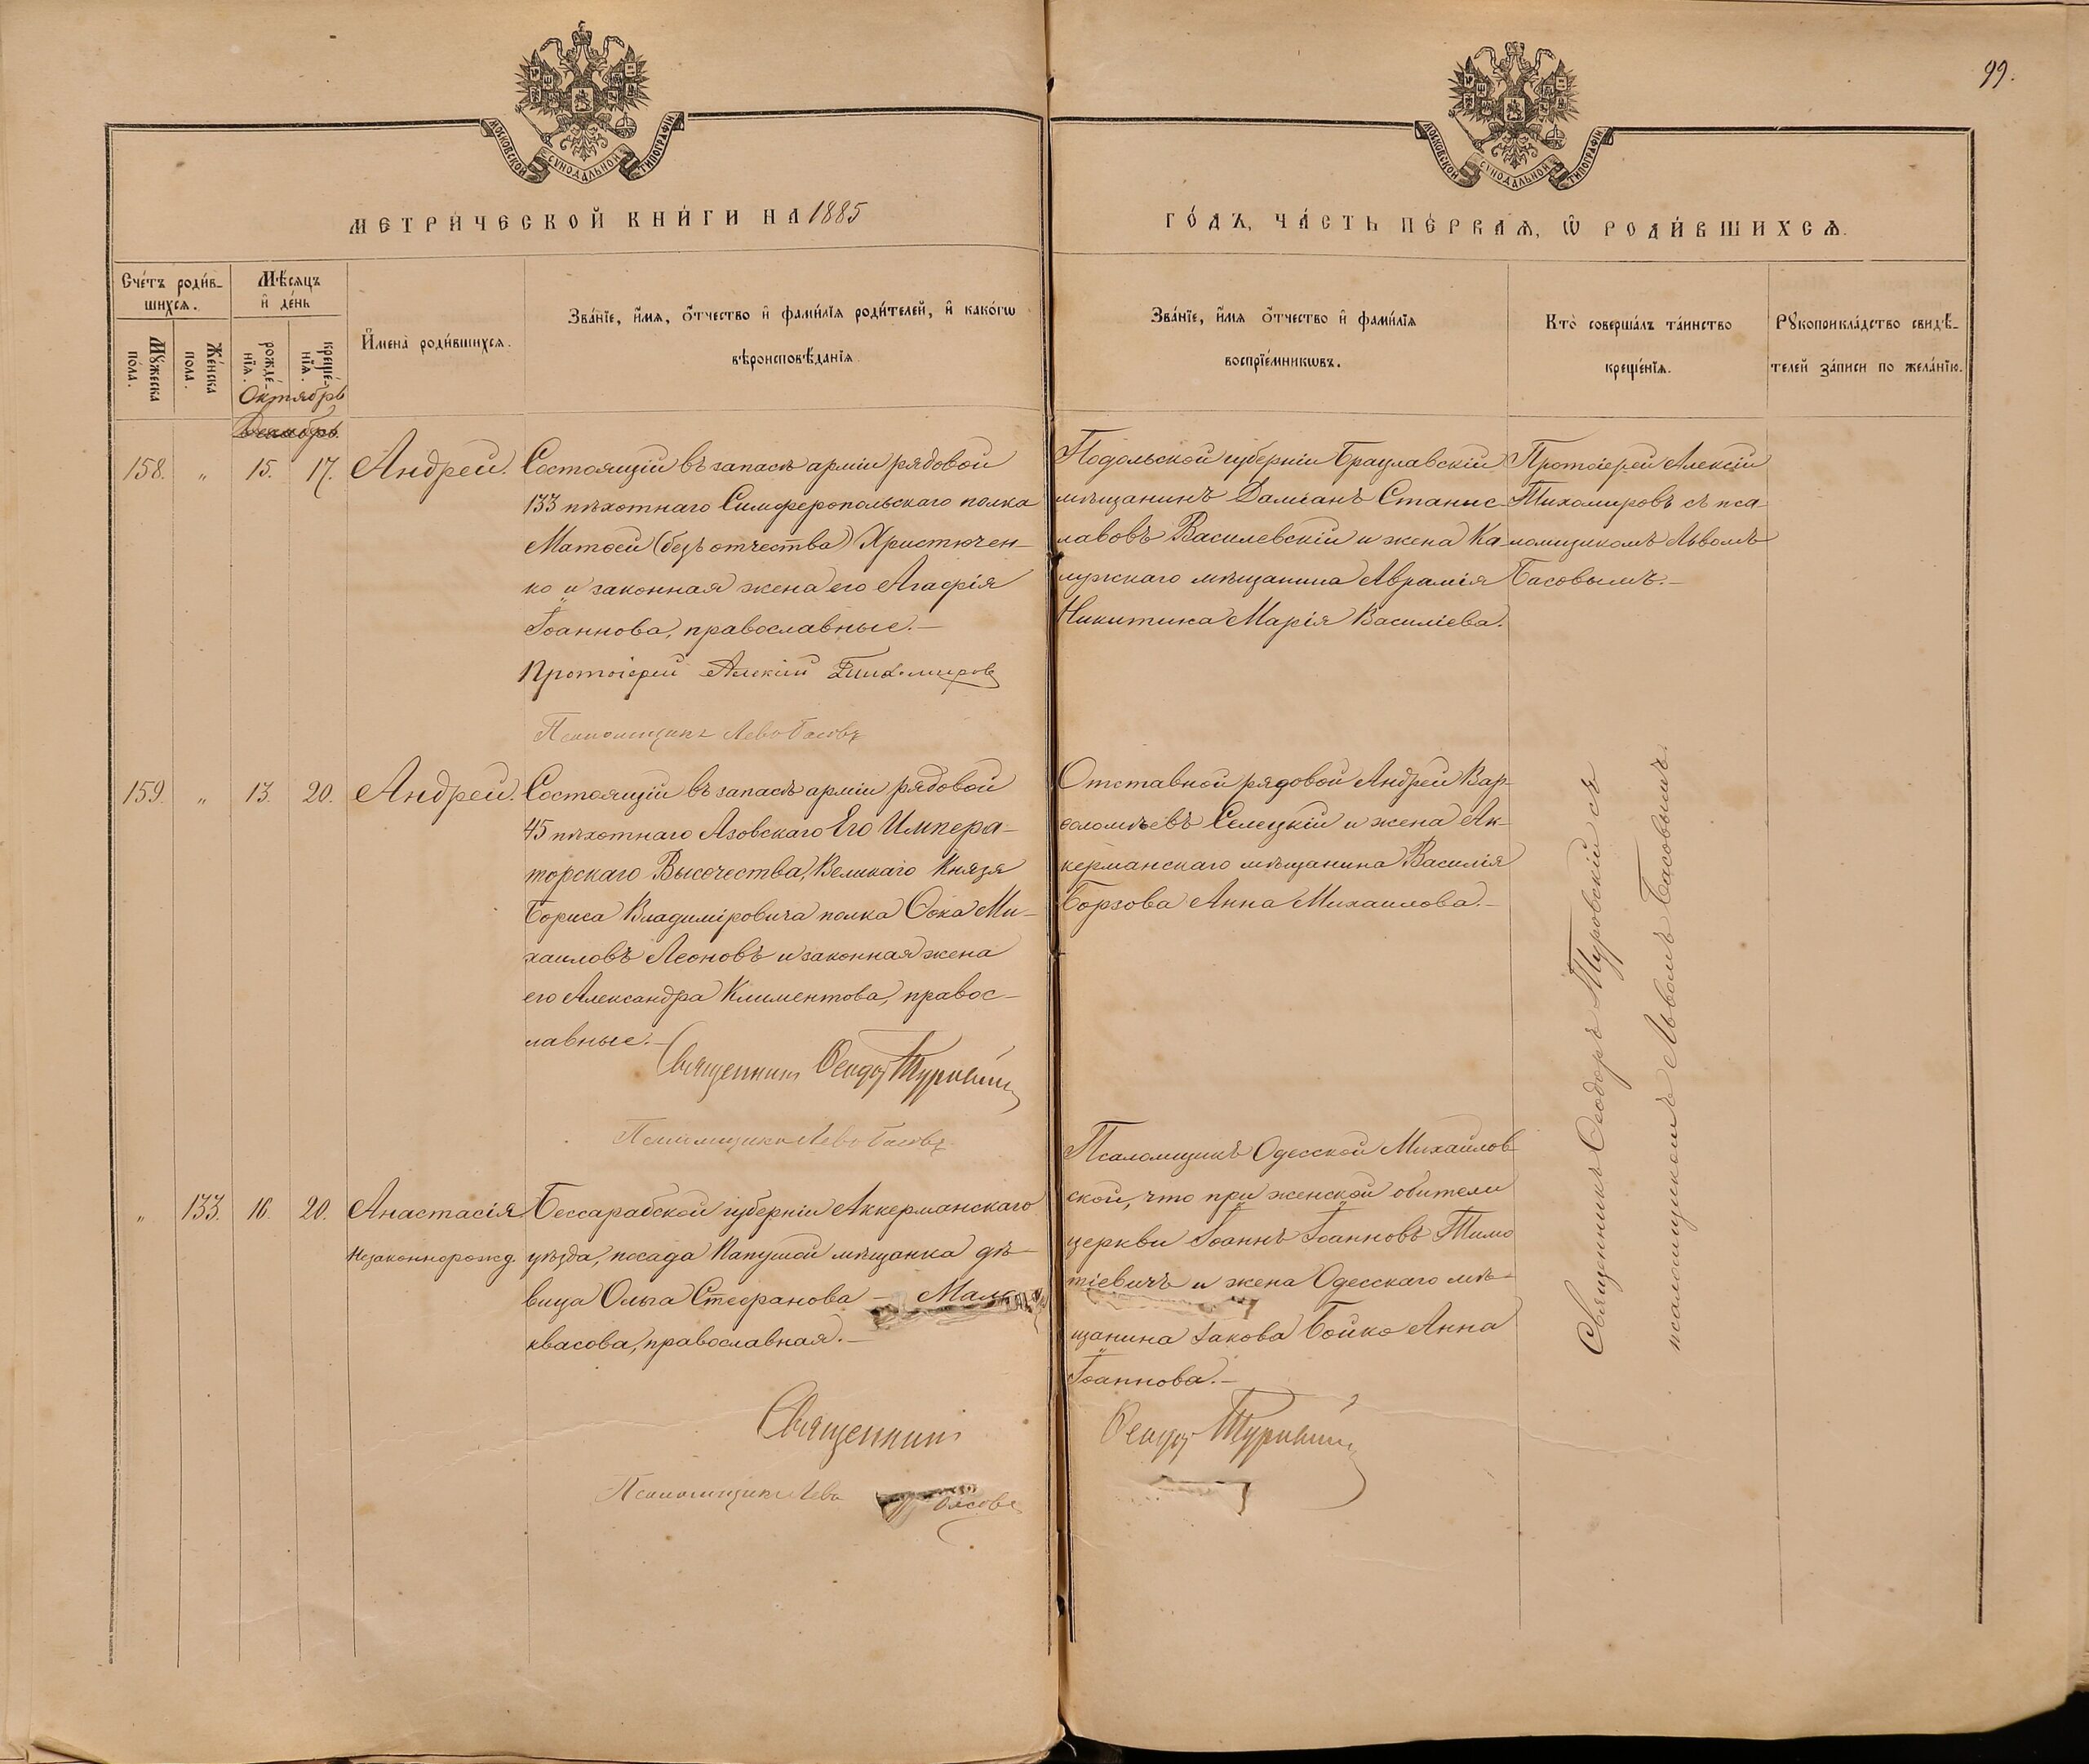 99.
МОСКОВСКОЙ СѴНОДАЛЬНОЙ ТИПОГРАФІИ
МОСКОВСКОЙ СѴНОДАЛЬНОЙ ТИПОГРАФІИ
МЕТРИ́ЧЕСКОЙ КНИ́ГИ НА 1885
ГО́ДЪ, ЧА́СТЬ ПЕ́РВАѦ, Ѿ РОДИ́ВШИХСѦ.
Сче́тъ роди́в-
шихсѧ.
Мѣ́сѧцъ
и҆ де́нь
Мꙋ́жеска
по́ла.
Же́нска
пола.
рожде́-
нїѧ.
креще́-
нїѧ.
И҆мена̀ роди́вшихсѧ.
Зва́нїе, и҆́мѧ, ѻ҆́тчество и҆ фами́лїѧ роди́телей, и҆ како́гѡ
вѣроисповѣ́данїѧ.
Зва́нїе, и҆́мѧ ѻ҆́тчество и҆ фами́лїѧ
воспрїе́мникѡвъ.
Кто̀ соверша́лъ та́инство
креще́нїѧ.
Рꙋкоприкла́дство свидѣ́-
телей за́писи по жела́нїю.
Октябрь
Декабрь
158. " 15. 17. Андрей. Состоящій въ запасѣ арміи рядовой
133 пѣхотнаго Симферопольскаго полка
Матѳей (безъ отчества) Христючен-
ко и законная жена его Агафія
Іоаннова, православные.—
Протоіерей Алексій Тихомировъ
Псаломщикъ Левъ Басовъ
Подольской губерніи Брацлавскій
мѣщанинъ Даміанъ Станис-
лавовъ Василевскій и жена Ка-
лужскаго мѣщанина Аврамія
Никитина Марія Василіева.
Протоіерей Алексій
Тихомировъ съ пса
ломщикомъ Львомъ
Басовымъ.—
159. " 13. 20. Андрей. Состоящій въ запасѣ арміи рядовой
45 пѣхотнаго Азовскаго Его Импера-
торскаго Высочества, Великаго Князя
Бориса Владиміровича полка Ѳока Ми-
хаиловъ Леоновъ и законная жена
его Александра Климентова, правос-
лавные.—
Священникъ Ѳеодоръ Туровскій
Псаломщикъ Левъ Басовъ
Отставной рядовой Андрей Вар-
ѳоломѣевъ Селецкій и жена Ак-
керманскаго мѣщанина Василія
Борзова Анна Михаилова.—
Священникъ Ѳеодоръ Туровскій съ
псаломщикомъ Львомъ Басовымъ.
" 133. 16. 20. Анастасія Бессарабской губерніи Аккерманскаго
Незаконнорожд. уѣзда, посада Папушой мѣщанка дѣ-
вица Ольга Стефанова —
квасова, православная.—
Священникъ
Псаломщикъ Левъ Басовъ
Псаломщикъ Одесской Михайлов-
ской, что при женской обители
церкви Іоаннъ Іоанновъ Тимо
тіевичъ и жена Одесскаго мѣ-
щанина Іакова Бойко Анна
Іоаннова.—
Ѳеодоръ Туровскій